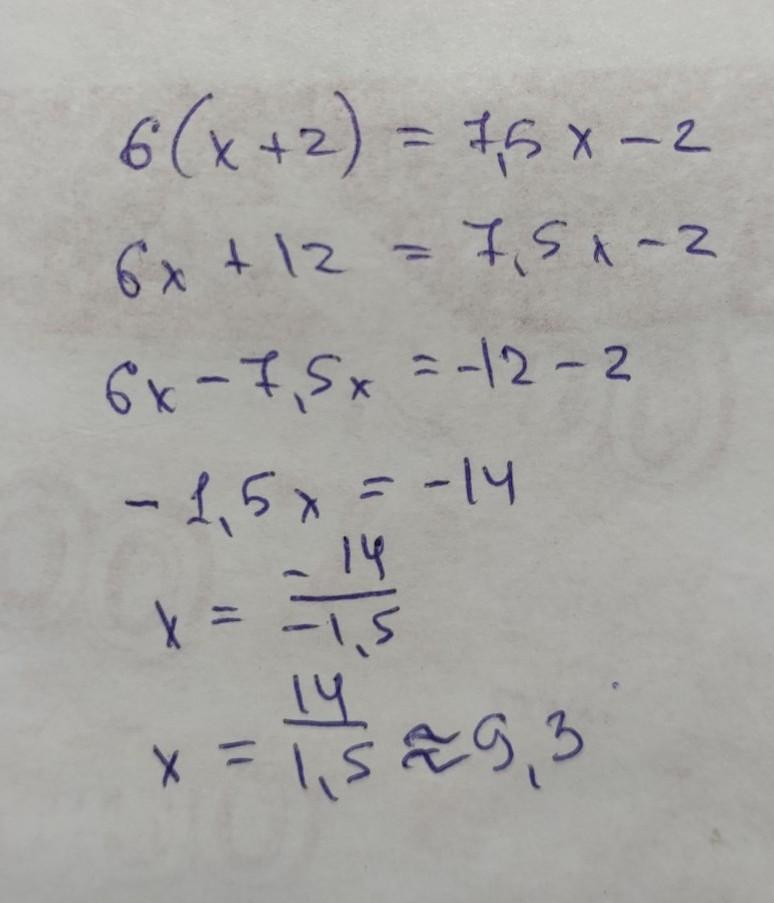 6(x+2) = 7,5x-2
6x + 12 = 7,5x-2
6x-7,5x = -12-2
-1,5x = -14
x = -14/-1,5
x = 14/1,5 ≈ 9,3